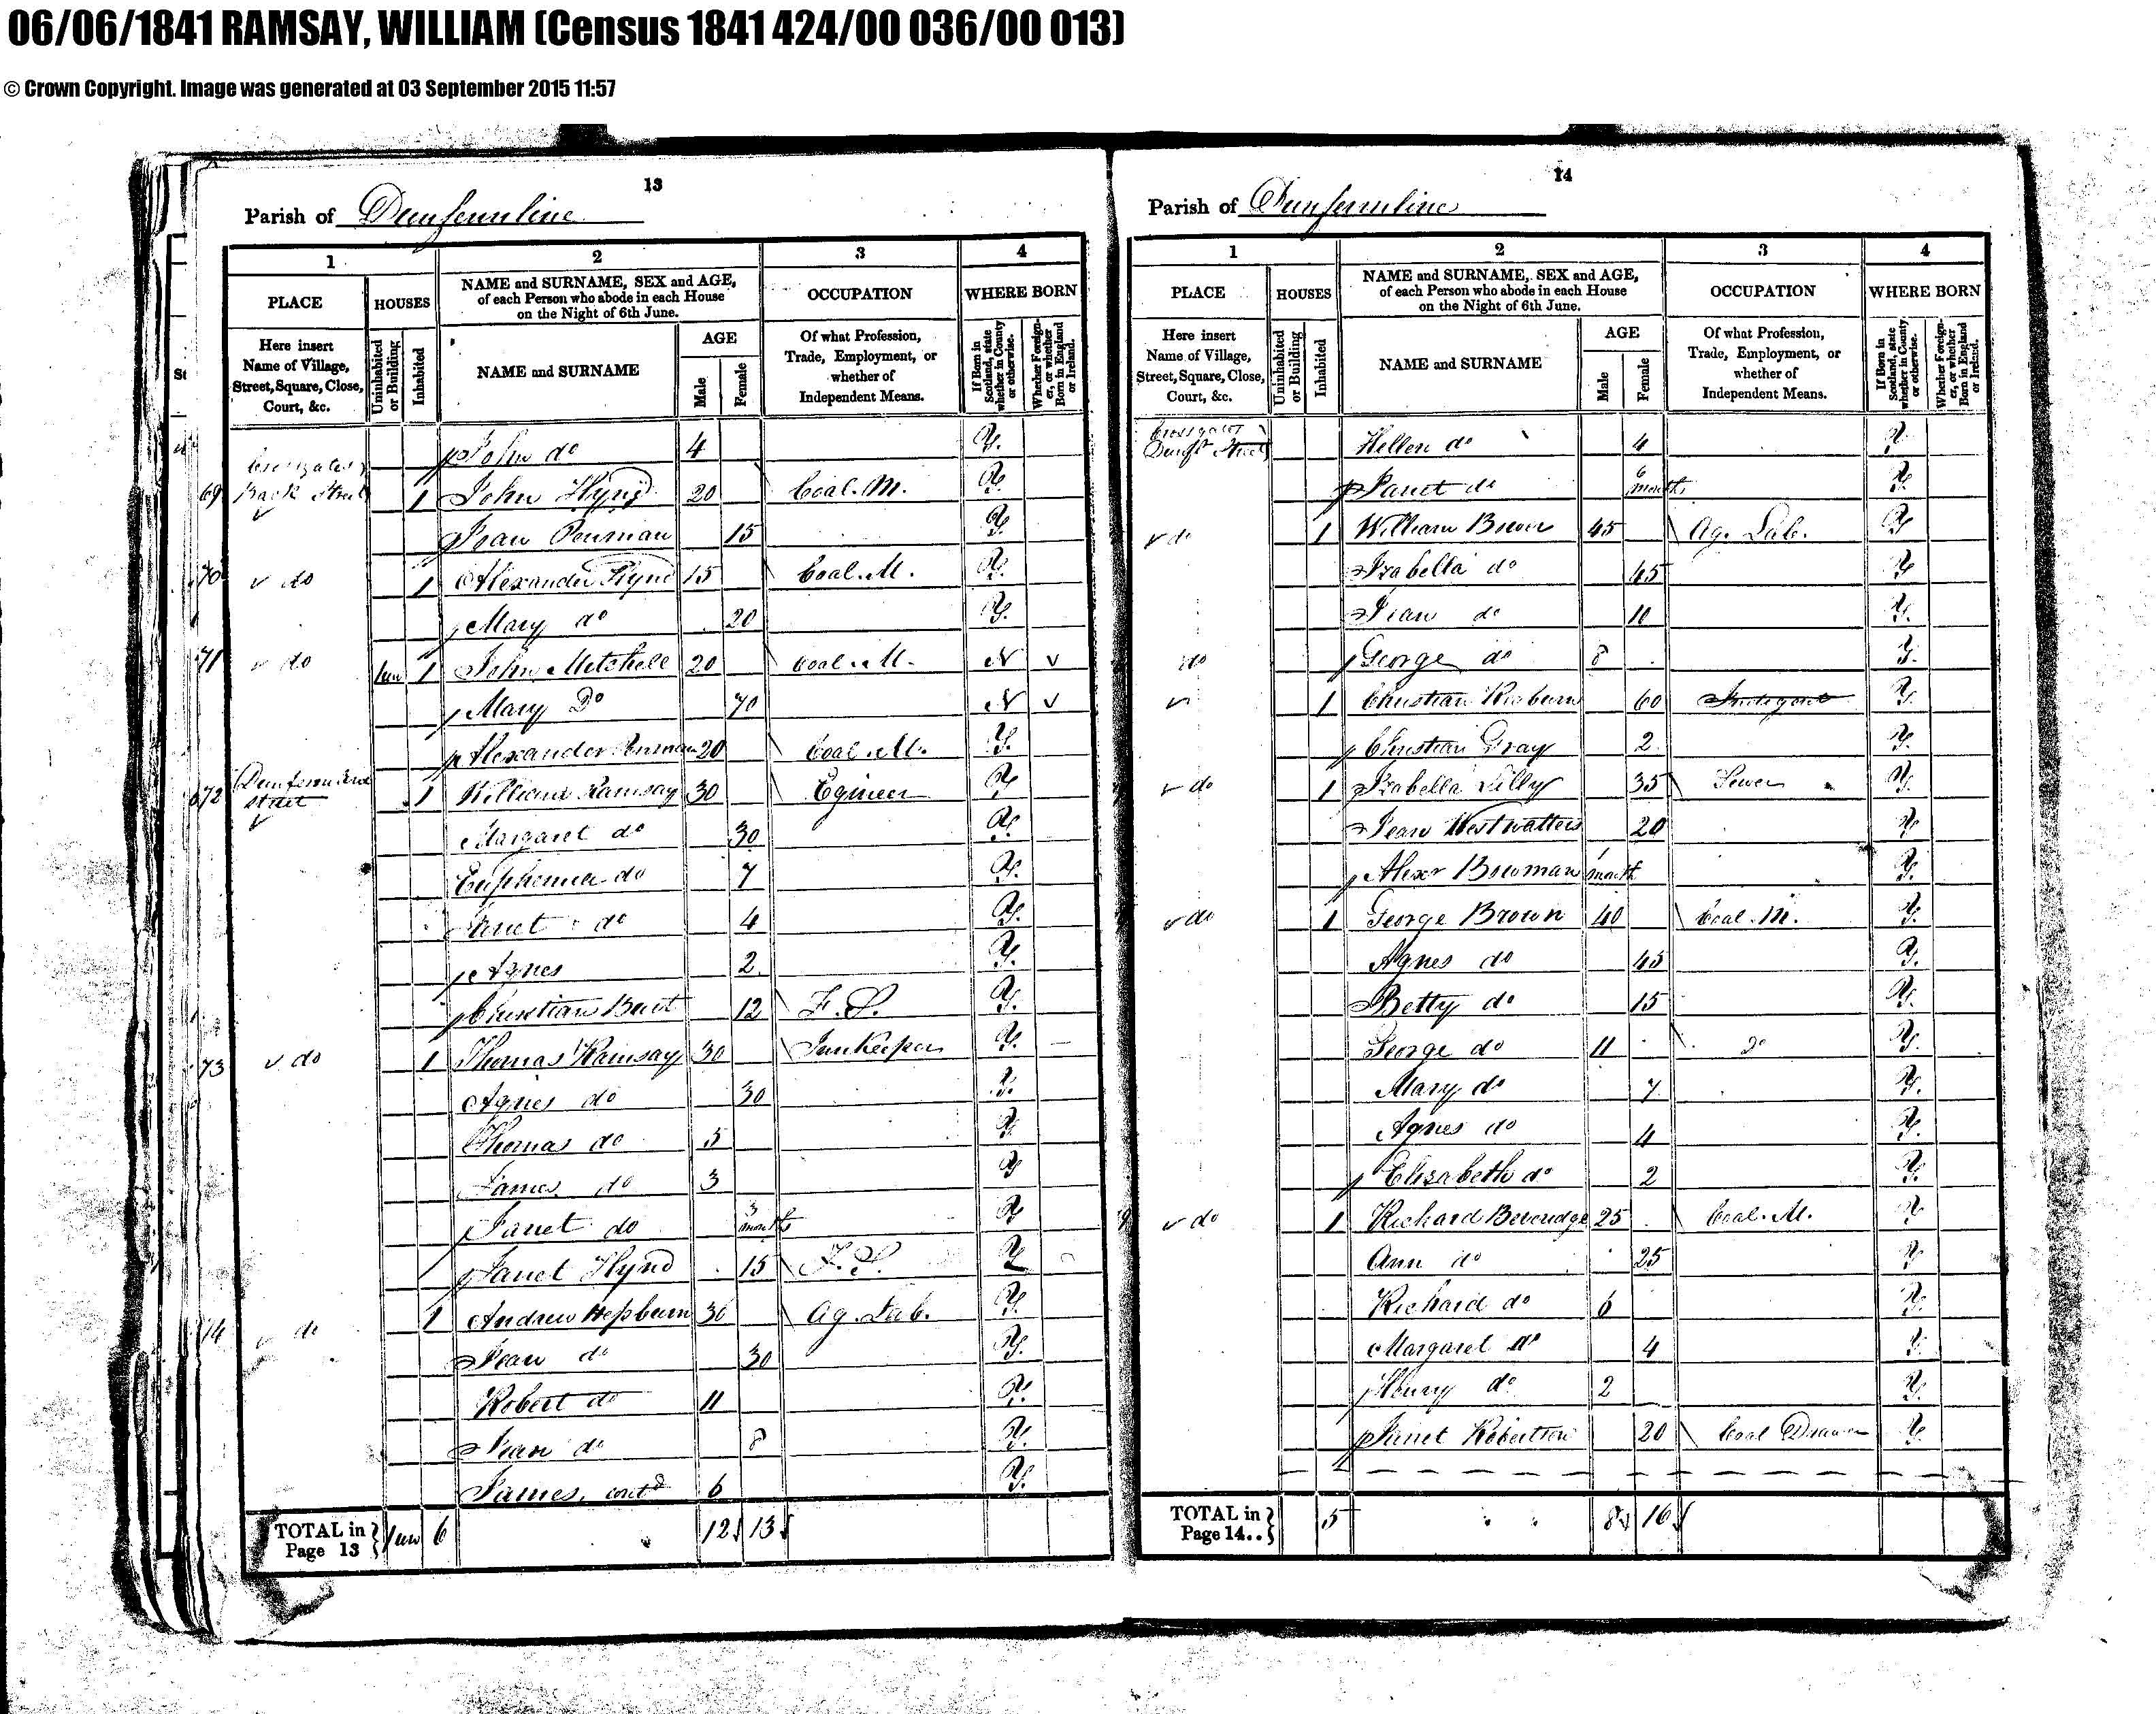 06/06/1841 RAMSAY, WILLIAM (Census 1841 424/00 036/00 013)
© Crown Copyright. Image was generated at 03 September 2015 11:57
13
Parish of Dunfermline
1 2 3 4
PLACE HOUSES NAME and SURNAME, SEX and AGE, of each Person who abode in each House on the Night of 6th June. OCCUPATION WHERE BORN
Here insert Name of Village, Street, Square, Close, Court, &c. Uninhabited or Building Inhabited NAME and SURNAME AGE Male Female Of what Profession, Trade, Employment, or whether of Independent Means. If Born in Scotland, state whether in County or otherwise. Whether Foreigner, or whether Born in England or Ireland.
John do 4 Y.
Crossgates
69 Back Street 1 John Hynd 20 Coal. M. Y.
Jean Penman 15 Y.
70 do 1 Alexander Hynd 15 Coal. M. Y.
Mary do 20 Y.
71 do 1un 1 John Mitchell 20 Coal. M. N
Mary Do 70 N
Alexander Penman 20 Coal. M. Y.
72 Dunfermline street 1 William Ramsay 30 Egineer Y
Margaret do 30 Y.
Euphemia do 7 Y.
Janet do 4 Y.
Agnes 2 Y.
Christian Burt 12 F. S. Y.
73 do 1 Thomas Ramsay 30 Innkeeper Y.
Agnes do 30 Y.
Thomas do 5 Y.
James do 3 Y
Janet do 3 months Y
Janet Hynd 15 F. S. Y
74 do 1 Andrew Hepburn 30 Ag. Lab. Y.
Jean do 30 Y.
Robert do 11 Y.
Jean do 8 Y.
James. contd 6 Y.
TOTAL in Page 13 1un 6 12 13
14
Parish of Dunfermline
1 2 3 4
PLACE HOUSES NAME and SURNAME, SEX and AGE, of each Person who abode in each House on the Night of 6th June. OCCUPATION WHERE BORN
Here insert Name of Village, Street, Square, Close, Court, &c. Uninhabited or Building Inhabited NAME and SURNAME AGE Male Female Of what Profession, Trade, Employment, or whether of Independent Means. If Born in Scotland, state whether in County or otherwise. Whether Foreigner, or whether Born in England or Ireland.
Crossgates
Street Hellen do 4 Y.
Janet do 6 months Y
do 1 William Bower 45 Ag. Lab. Y
Izabella do 45 Y
Jean do 10 Y.
do George do 8 Y.
1 Christian 60 Y
Christian Gray 2 Y
do 1 Izabella Lilly 35 Sewer Y
Jean Westwatters 20 Y
Alexr Bowman 1 month Y.
do 1 George Brown 40 Coal. M. Y.
Agnes do 45 Y.
Betty do 15 Y.
George do 11 Do Y.
Mary do 7 Y.
Agnes do 4 Y.
Elizabeth do 2 Y.
do 1 Richard Beveridge 25 Coal. M. Y
Ann do 25 Y
Richard do 6 Y.
Margaret do 4 Y.
Henry do 2 Y.
Janet Robertson 20 Coal Drawer Y.
TOTAL in Page 14.. 5 8 16